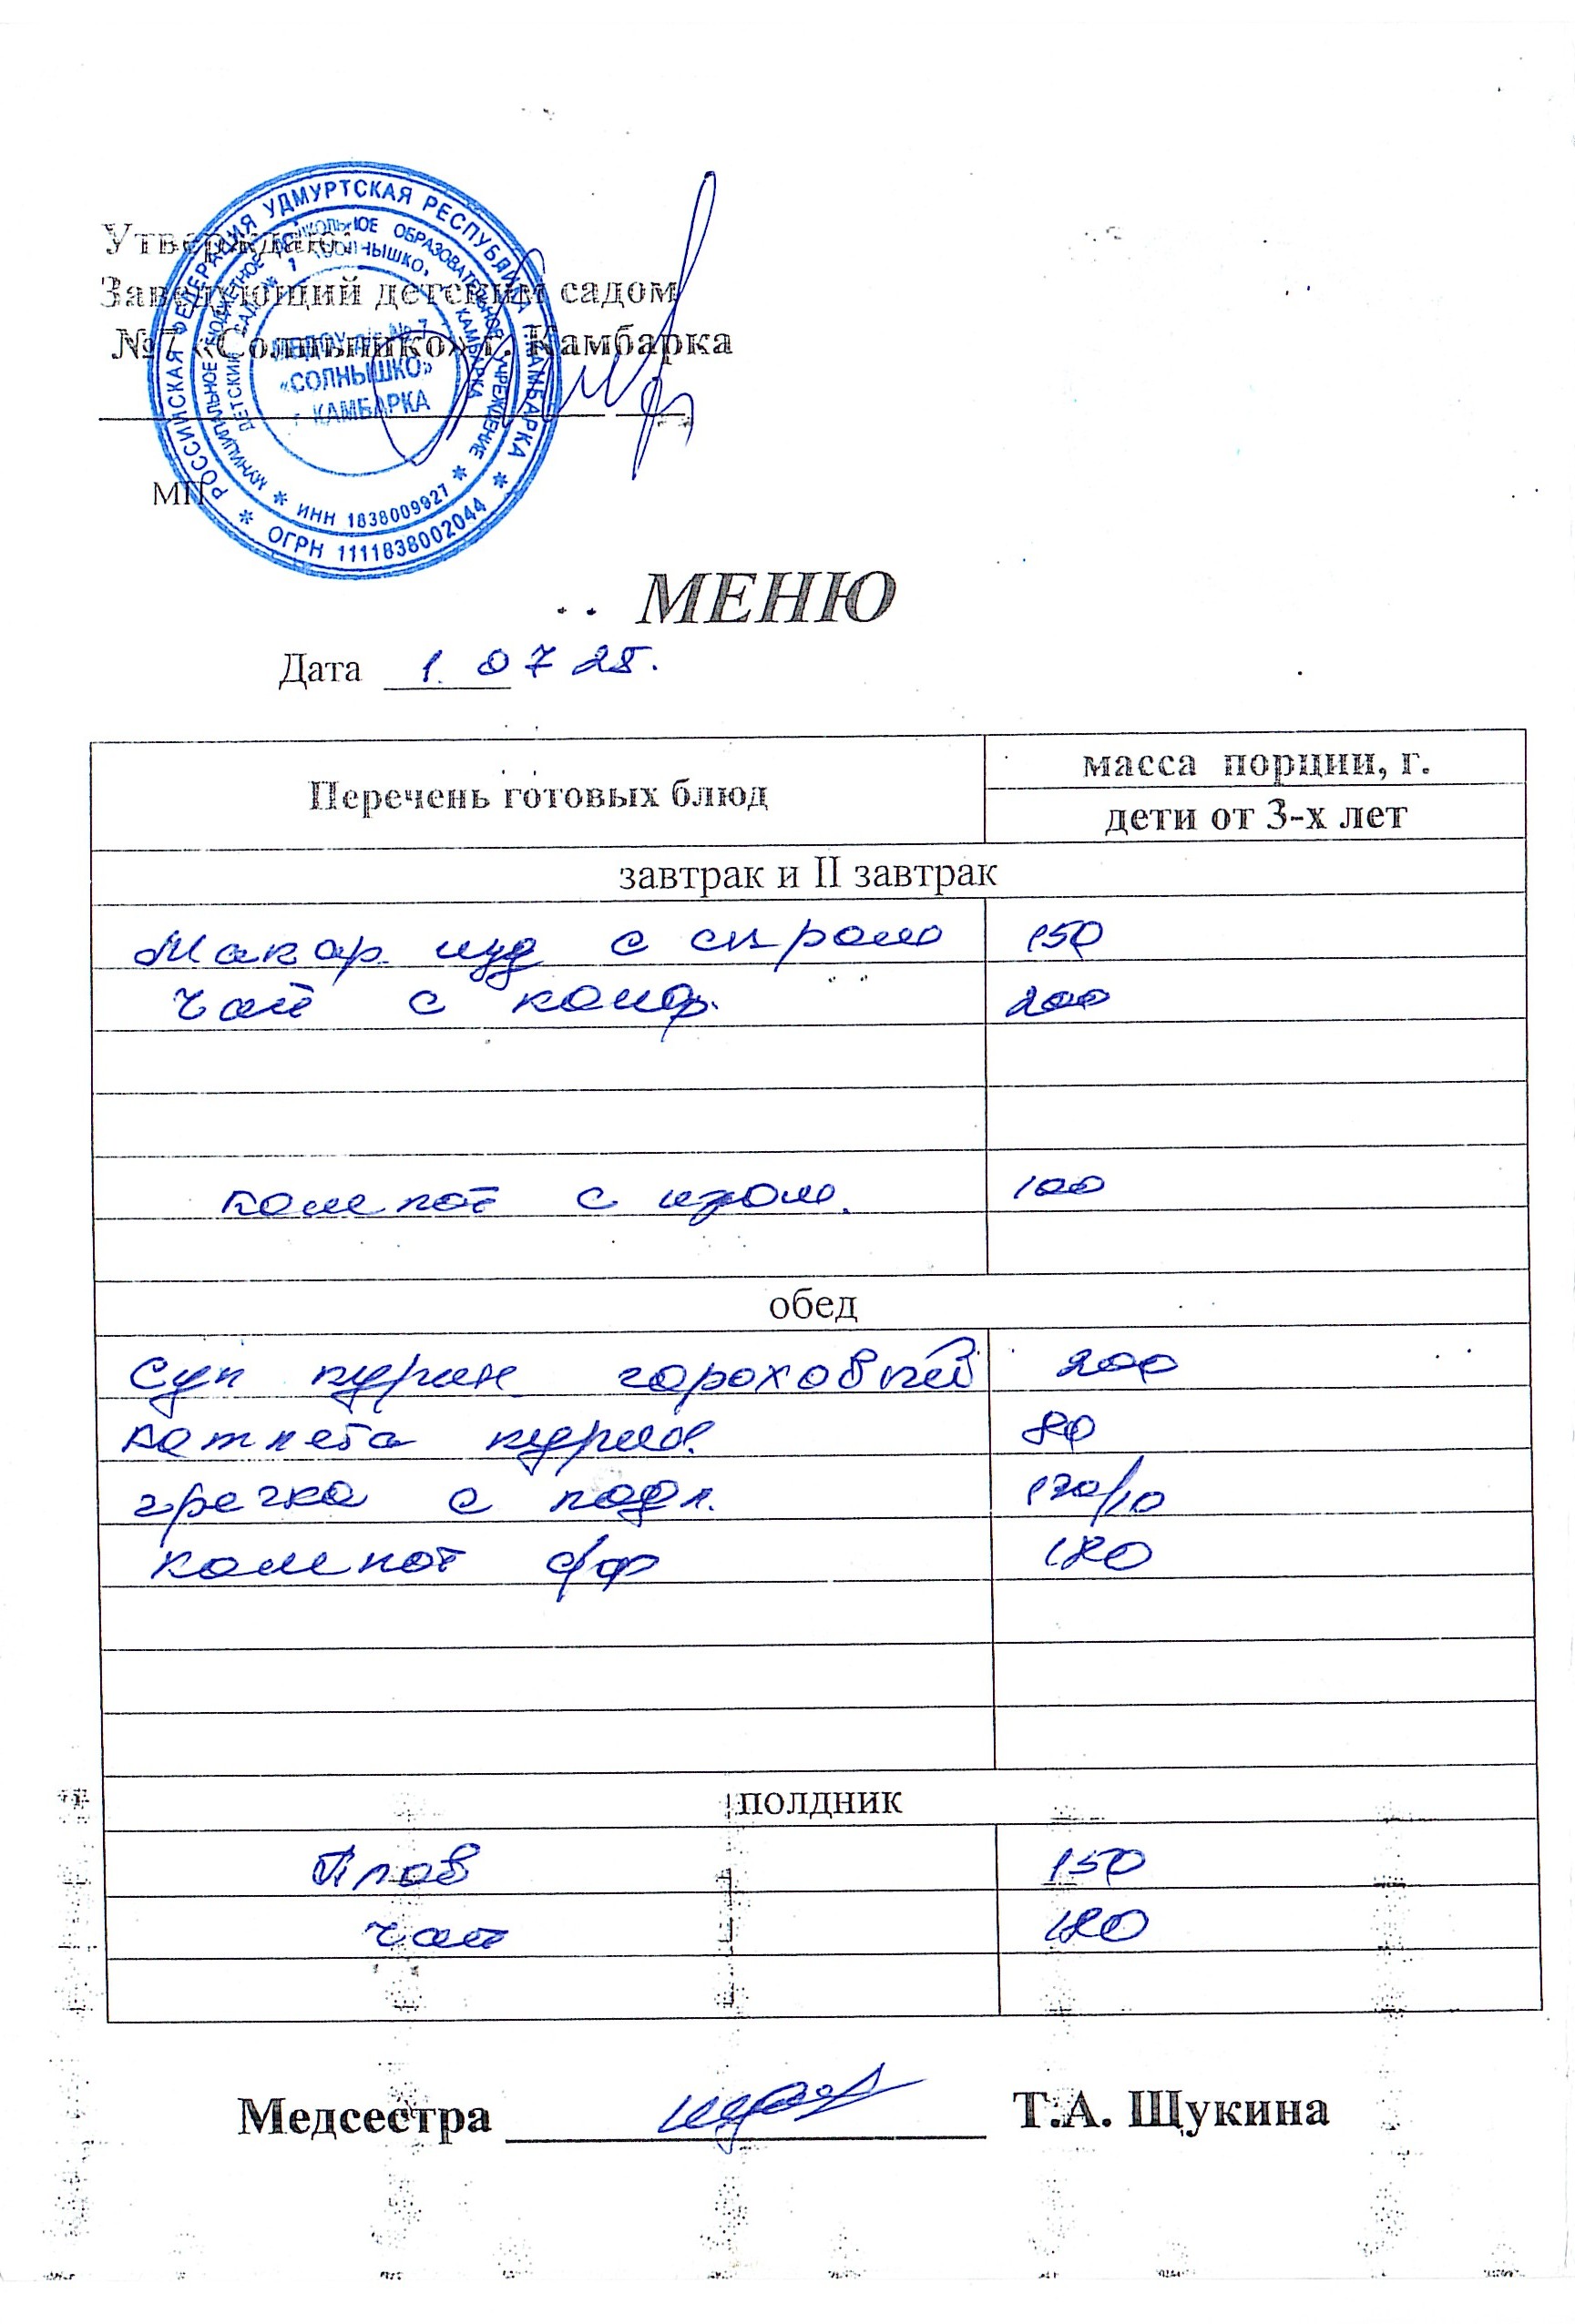 Утверждаю:
Заведующий детским садом
№7 «Солнышко» г. Камбарка
МП
РОССИЙСКАЯ ФЕДЕРАЦИЯ УДМУРТСКАЯ РЕСПУБЛИКА Г. КАМБАРКА
ОГРН 1111838002044
МУНИЦИПАЛЬНОЕ БЮДЖЕТНОЕ ДОШКОЛЬНОЕ ОБРАЗОВАТЕЛЬНОЕ УЧРЕЖДЕНИЕ
ИНН 1838009927
ДЕТСКИЙ САД № 7 «СОЛНЫШКО» КАМБАРКА
№ 7
«СОЛНЫШКО»
г. КАМБАРКА
МЕНЮ
Дата 1. 07 25.
Перечень готовых блюд масса порции, г.
дети от 3-х лет
завтрак и II завтрак
Макар. изд с сыром 150
Чай с конф. 200
компот с изюм. 100
обед
Суп курин гороховый 200
котлета курин. 80
гречка с подл. 170/10
компот с/ф 180
полдник
Плов 150
чай 180
Медсестра Т.А. Щукина